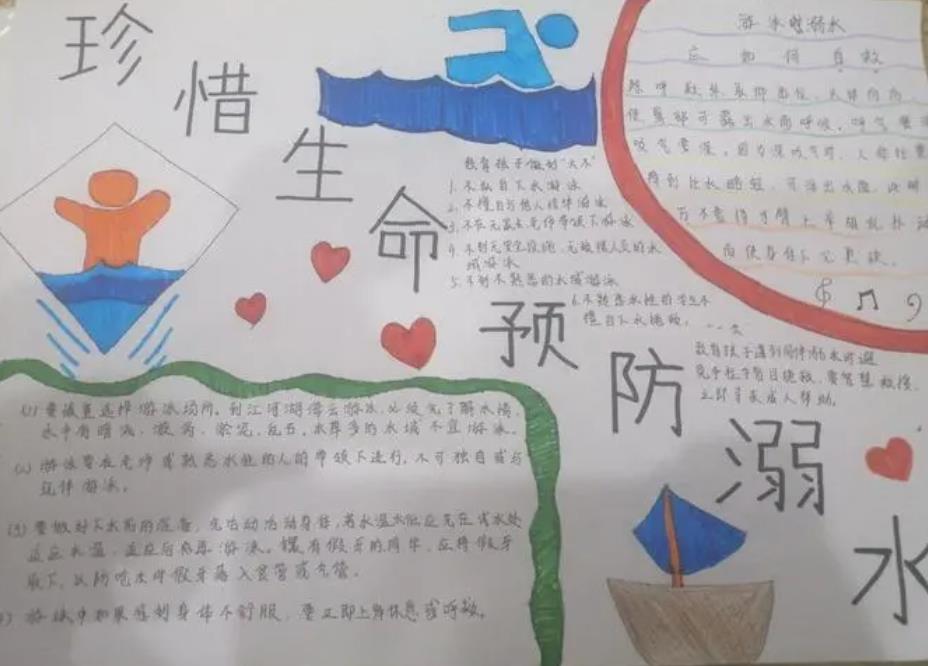 珍惜生命预防溺水
游泳时溺水
应如何自救
除呼
使鼻部可露出水面呼吸,呼气要浅
吸气要深,因为深吸气时,人体比重
降到比水略轻,可浮出水面,此时
万不要将手臂上举胡乱扑动
而使身体下沉更快。
教育孩子做到“六不”
1.不私自下水游泳
2.不擅自与他人结伴游泳
3.不在无家长老师带领下游泳
4.不到无安全设施、无救援人员的水
域游泳
5.不到不熟悉的水域游泳
6.不熟悉水性的学生不
擅自下水施救。
教育孩子遇到同伴溺水时避
免手拉手盲目施救,要智慧救援,
立即寻求成人帮助。
(1)要慎重选择游泳场所,到江河湖海去游泳,必须先了解水情,
水中有暗流、漩涡、淤泥、乱石、水草多的水域不宜游泳。
(2)游泳要在老师或熟悉水性的人的带领下进行,不可独自或与
玩伴游泳。
(3)要做好下水前的准备,先活动活动身体,若水温太低应先在浅水处
适应水温,适应后再游泳。镶有假牙的同学,应将假牙
取下,以防呛水时假牙落入食管或气管。
游泳中如果感到身体不舒服,要立即上岸休息或呼救。